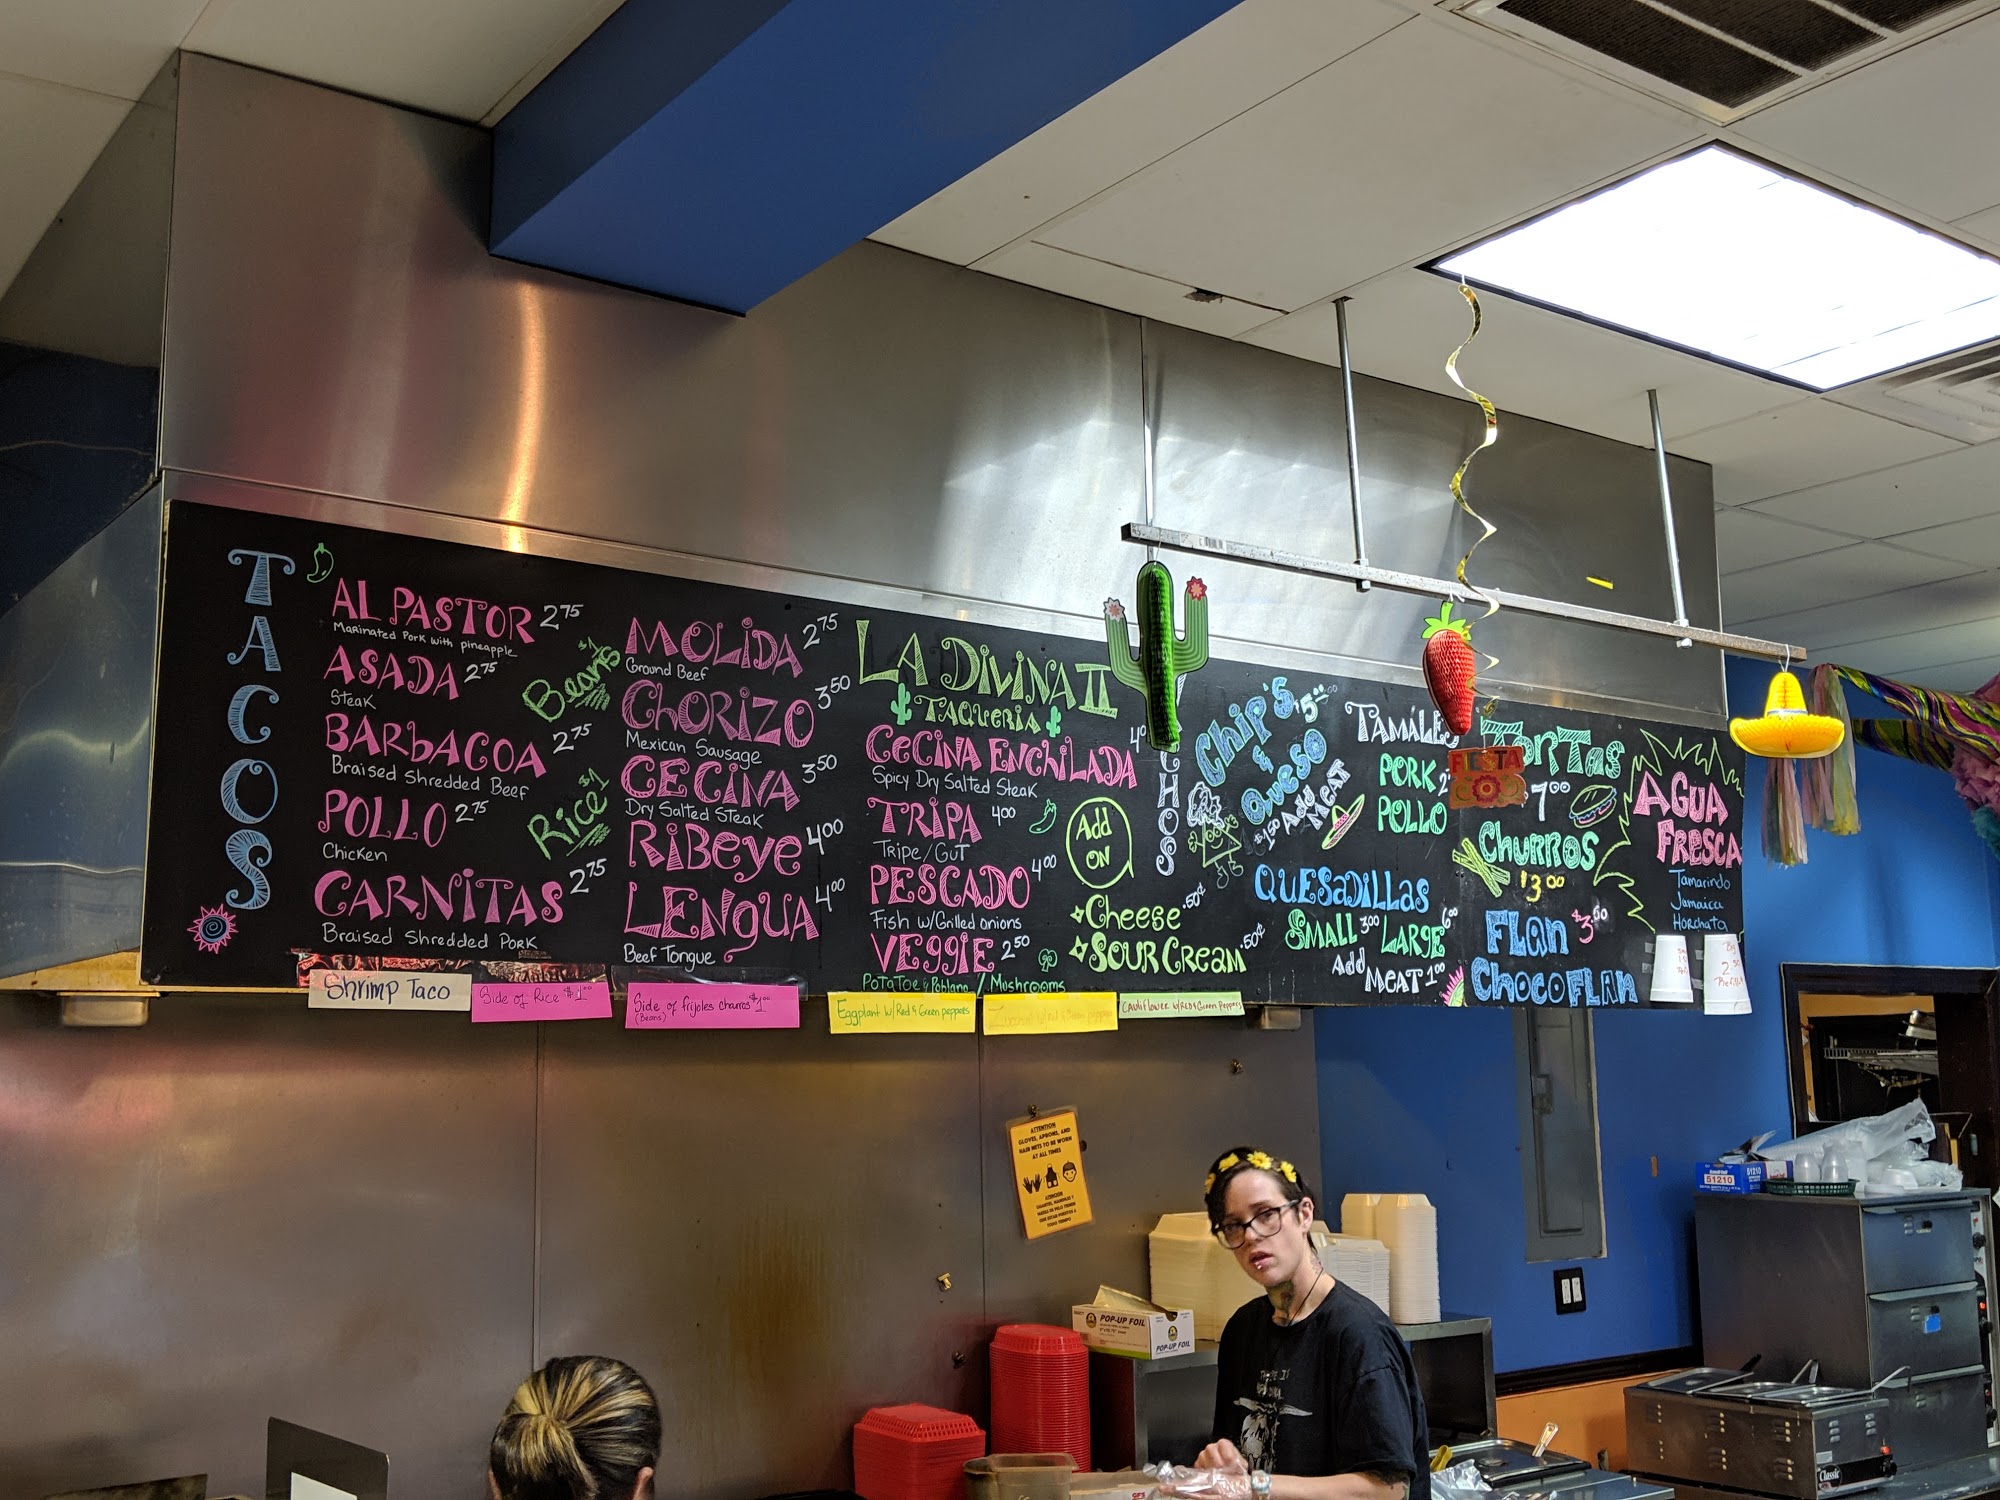 TACOS
AL PASTOR 2.75
Marinated Pork with pineapple
ASADA 2.75
Steak
BARBACOA 2.75
Braised Shredded Beef
POLLO 2.75
Chicken
CARNITAS 2.75
Braised Shredded Pork
Beans $1
Rice $1
MOLIDA 2.75
Ground Beef
CHORIZO 3.50
Mexican Sausage
CECINA 3.50
Dry Salted Steak
RIBEYE 4.00
LENGUA 4.00
Beef Tongue
LA DIVINA II
TAQUERIA
CECINA ENCHILADA
Spicy Dry Salted Steak
TRIPA 4.00
Tripe/Gut
PESCADO 4.00
Fish w/Grilled onions
VEGGIE 2.50
Potatoe & Poblano / Mushrooms
Add
on
Cheese .50¢
Sour Cream .50¢
CHOS
Chip's $5.00
&
Queso
Add
MEAT
$1.50
QUESADILLAS
SMALL 3.00 LARGE 6.00
Add MEAT 1.00
TAMALES
PORK
POLLO
FIESTA
TORTAS
$7.00
CHURROS
$3.00
FLAN $3.50
CHOCOFLAN
AGUA
FRESCA
Tamarindo
Jamaica
Horchata
Shrimp Taco
Side of Rice $1.00
Side of frijoles charros $1.00
(Beans)
Eggplant w/Red & Green peppers
w/Red & Green peppers
Cauliflower w/Red & Green Peppers
ATTENTION
GLOVES, APRONS, AND
HAIR NETS TO BE WORN
AT ALL TIMES
ATENCIÓN
TODO TIEMPO
POP-UP FOIL
POP-UP FOIL
51210
51210
Classic